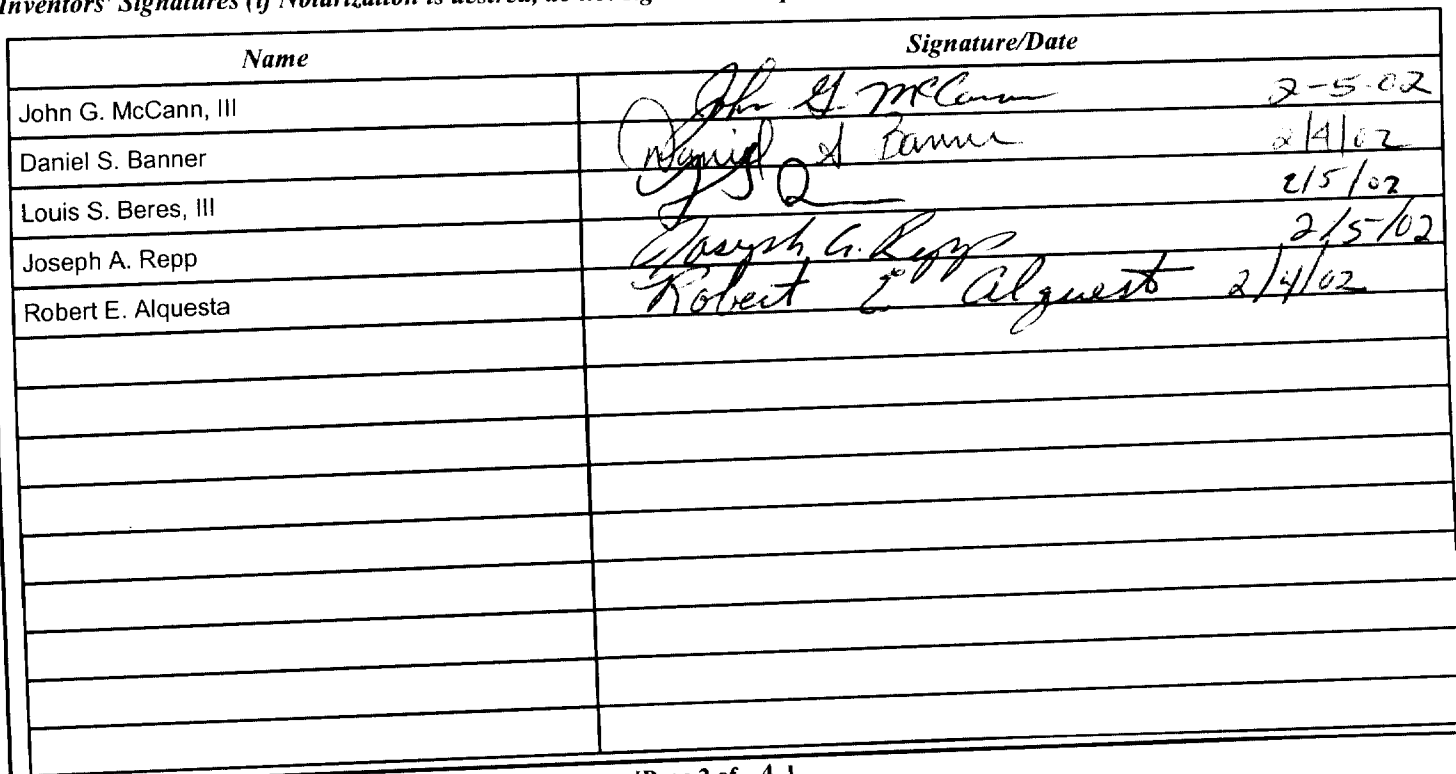 Inventors' Signatures (if Notarization is desired, do not sign
Name Signature/Date
John G. McCann, III John G. McCann 2-5-02
Daniel S. Banner Daniel S Banner 2/4/02
Louis S. Beres, III 2/5/02
Joseph A. Repp Joseph A. Repp 2/5/02
Robert E. Alquesta Robert E Alquest 2/4/02
(Page 2 of 4 )